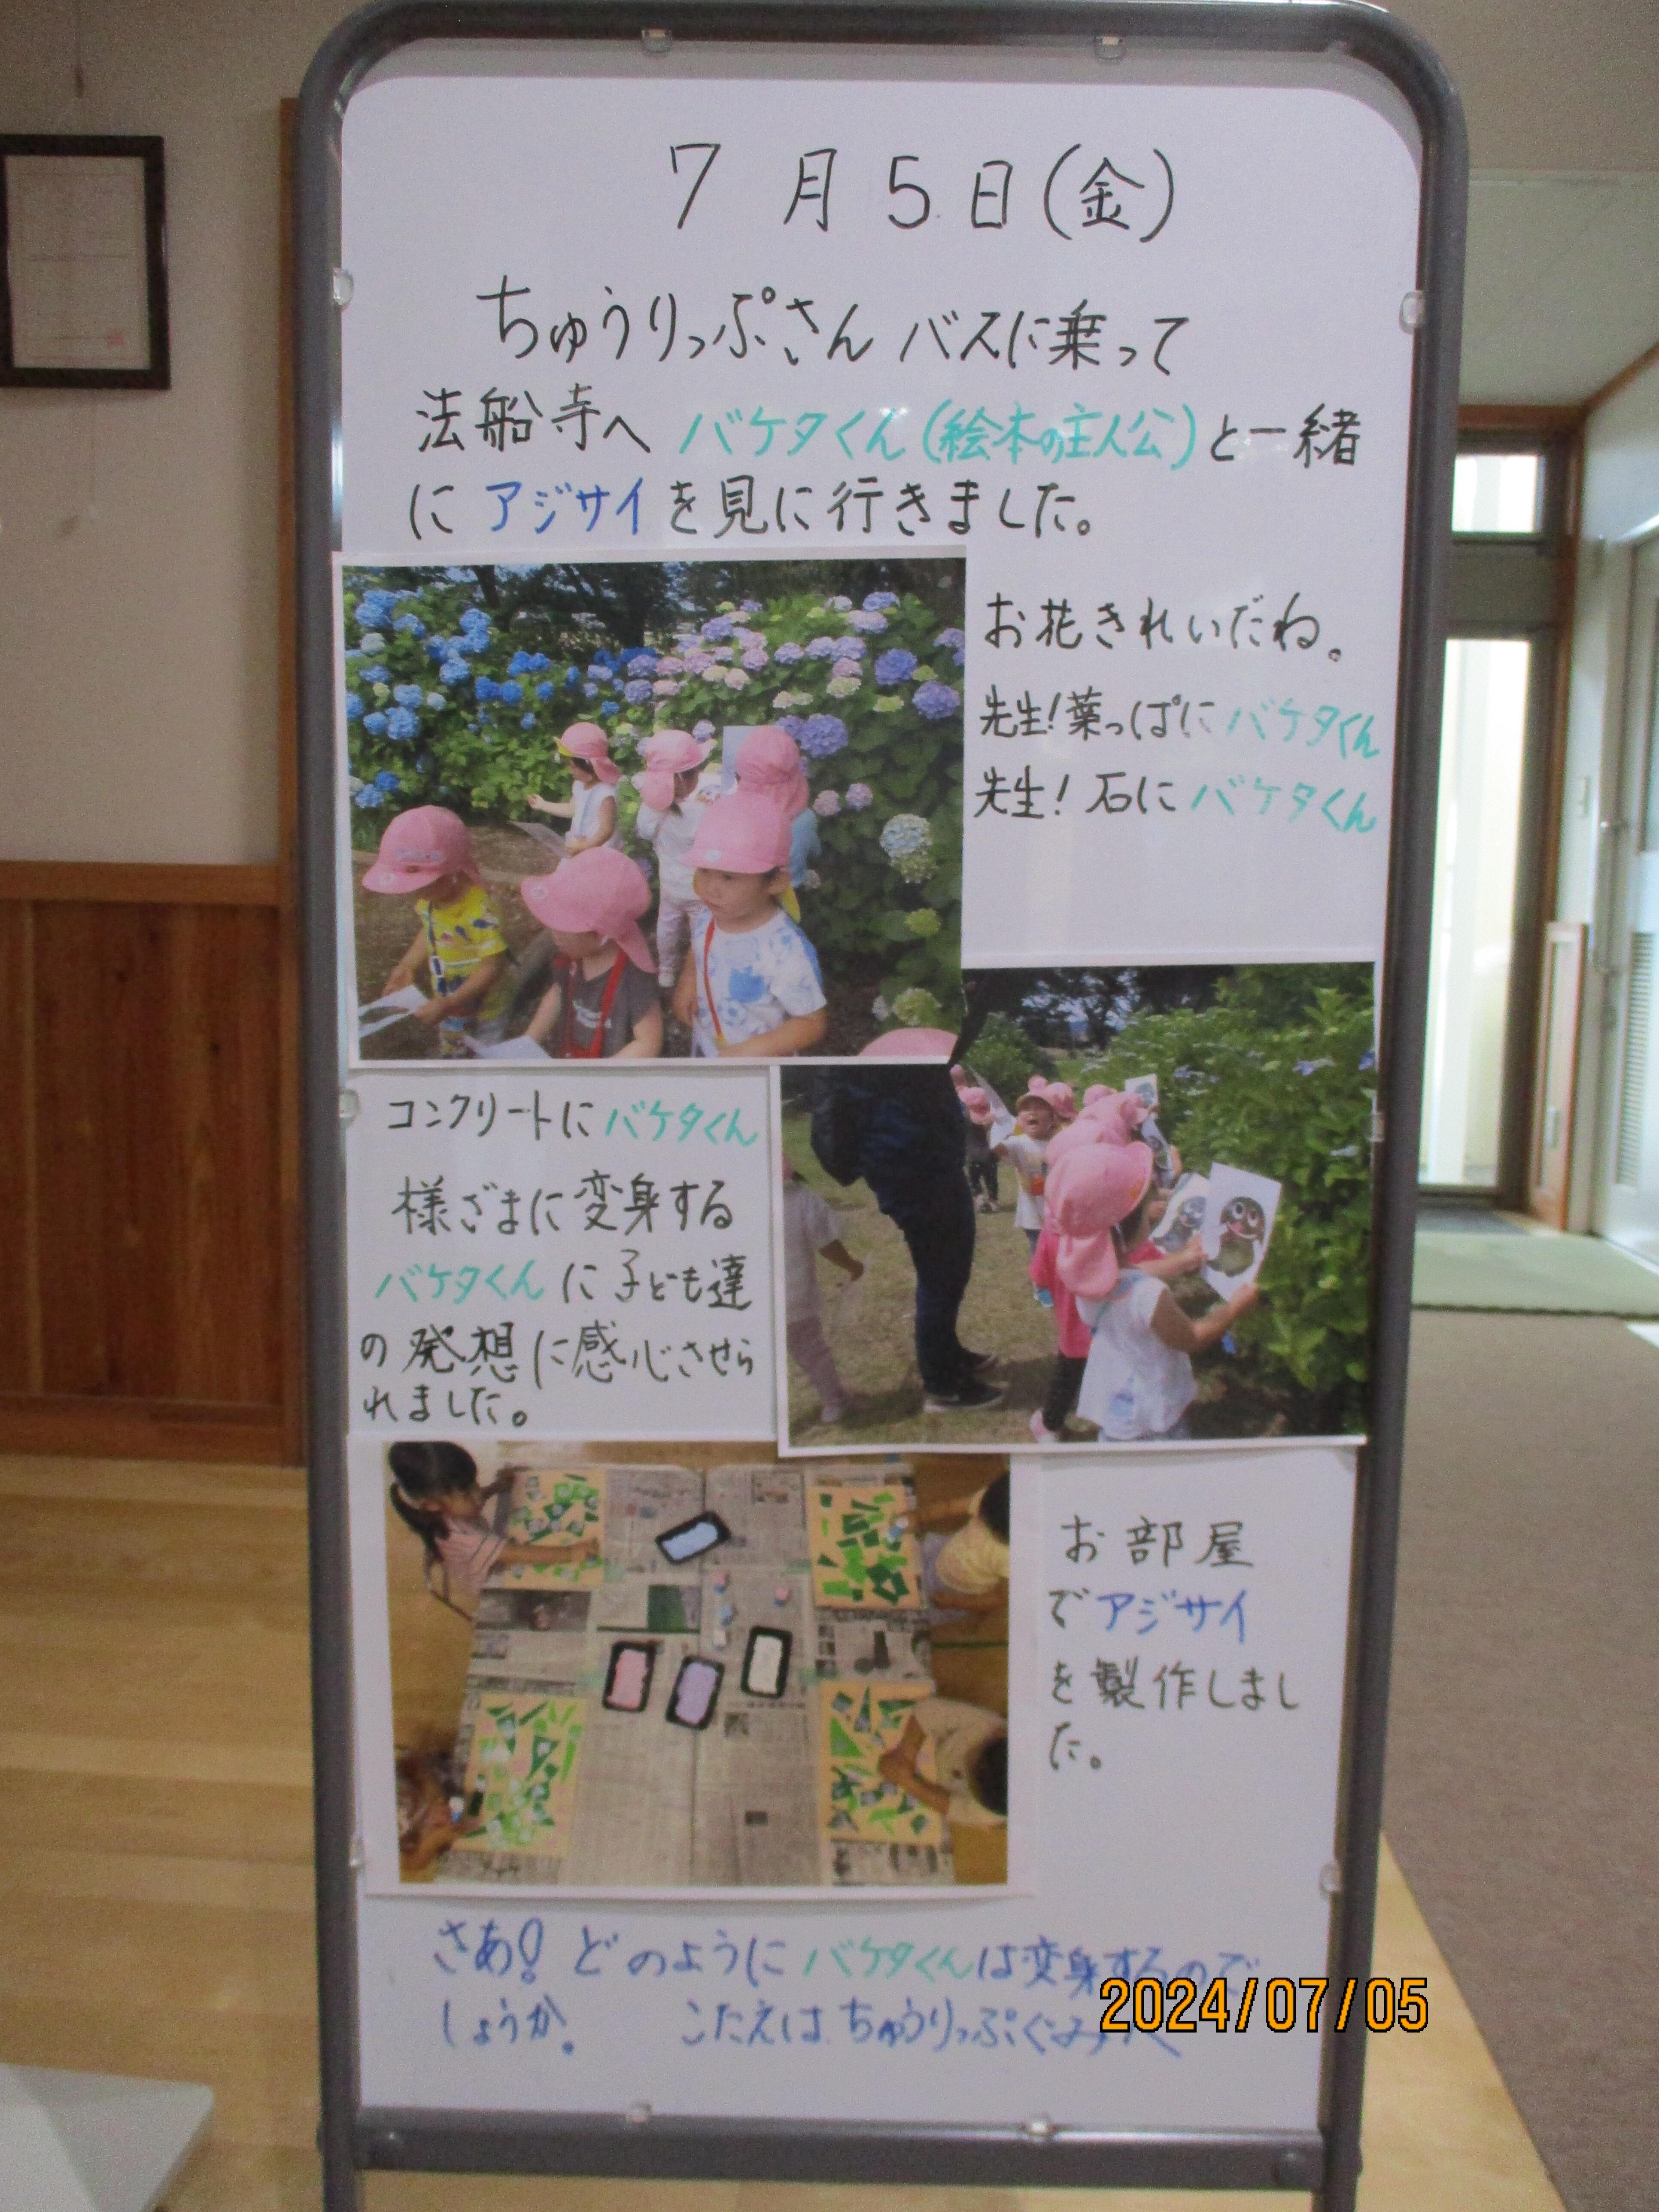 7月5日(金)
ちゅうりっぷさん バスに乗って
法船寺へ バケタくん(絵本の主人公)と一緒
に アジサイを見に行きました。
お花きれいだね。
先生!葉っぱに バケタくん
先生! 石に バケタくん
コンクリートに バケタくん
様ざまに変身する
バケタくんに子ども達
の発想に感心させら
れました。
お部屋
でアジサイ
を製作しまし
た。
さあ! どのように バケタくんは変身するので
しょうか。 こたえは ちゅうりっぷぐみさんへ
2024/07/05